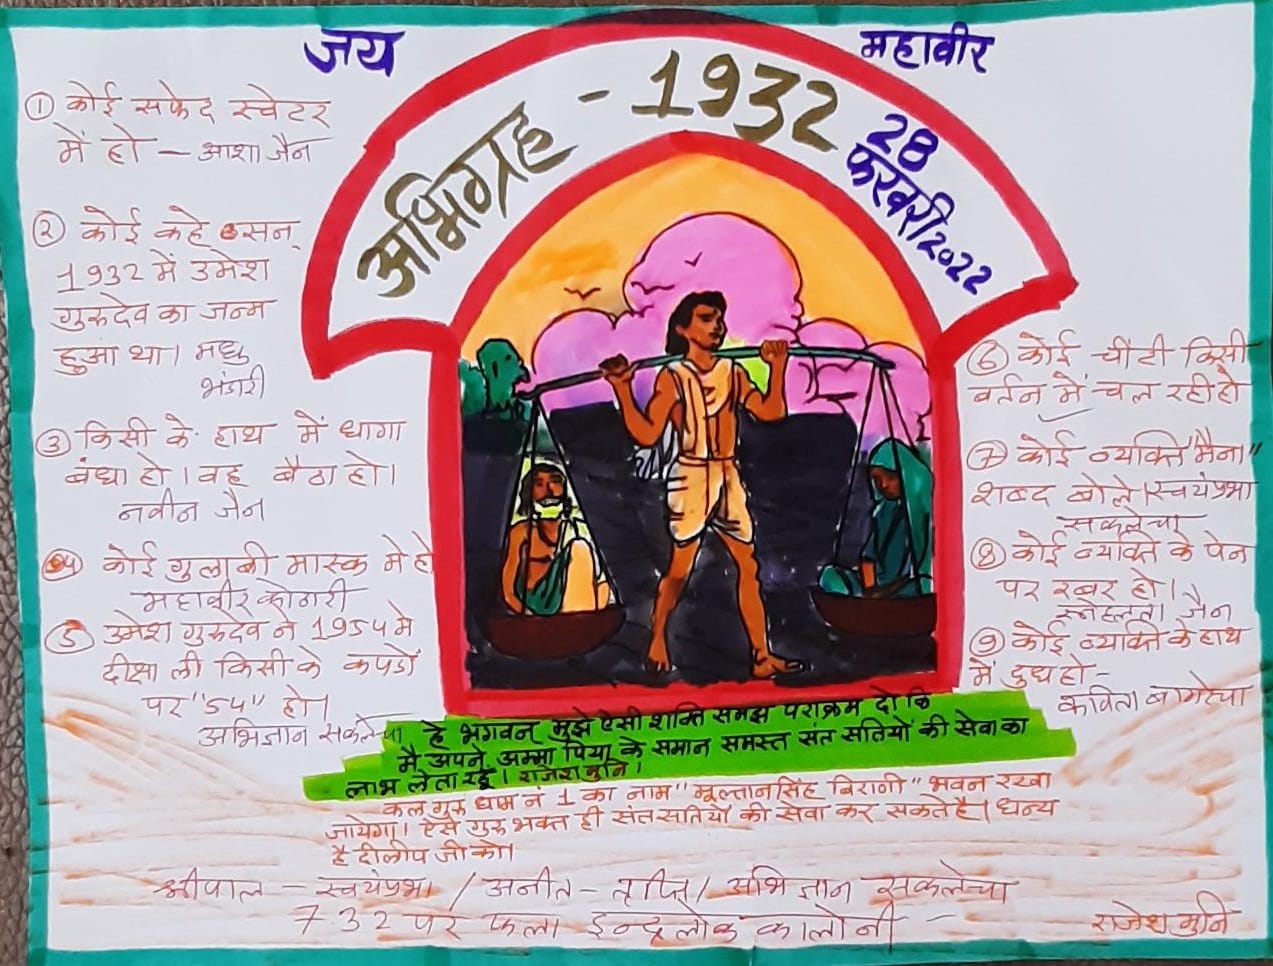 जय महावीर
अभिग्रह - 1932
28
फरवरी 2022
① कोई सफेद स्वेटर
में हो - आशा जैन
② कोई कहे सन्
1932 में उमेश
गुरुदेव का जन्म
हुआ था। मधु
भंडारी
③ किसी के हाथ में धागा
बंधा हो। वह बैठा हो।
नवीन जैन
④ कोई गुलाबी मास्क मे हो
महावीर कोठारी
⑤ उमेश गुरुदेव ने 1954 मे
दीक्षा ली किसी के कपड़ों
पर "54" हो।
अभिज्ञान सकलेचा
⑥ कोई चींटी किसी
बर्तन में चल रही हो
⑦ कोई व्यक्ति "मैना"
शब्द बोले। स्वयंप्रभा
सकलेचा
⑧ कोई व्यक्ति के पेन
पर रबर हो।
स्नेहलता जैन
⑨ कोई व्यक्ति के हाथ
में दुध हो -
कविता
हे भगवन् मुझे ऐसी शक्ति समझ पराक्रम दो कि
मै अपने अम्मा पिया के समान समस्त संत सतियों की सेवा का
लाभ लेता रहूं। राजेश मुनि।
कल गुरु धाम नं 1 का नाम "मूल्तानसिंह बिरानी" भवन रखा
जायेगा। ऐसे गुरु भक्त ही संत सतियों की सेवा कर सकते है। धन्य
है दीलीप जी को।
श्रीपाल - स्वयंप्रभा / अनीत - / अभिज्ञान सकलेचा
7.32 पर फला इन्द्रलोक कालोनी -
राजेश मुनि